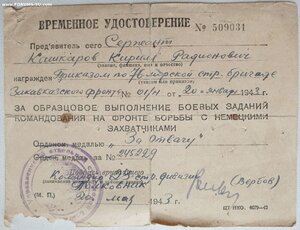 ВРЕМЕННОЕ УДОСТОВЕРЕНИЕ
№ 509031
Пред'явитель сего Сержант
Кашкаров Кирилл Радионович
(звание, фамилия, имя и отчество)
награжден Приказом по стр. бригаде
Закавказского фронта № 01/н от 20 января 1943 г.
ЗА ОБРАЗЦОВОЕ ВЫПОЛНЕНИЕ БОЕВЫХ ЗАДАНИЙ
КОМАНДОВАНИЯ НА ФРОНТЕ БОРЬБЫ С НЕМЕЦКИМИ
ЗАХВАТЧИКАМИ
Орденом медалью "За Отвагу"
Орден медаль за №
Командир стр. дивизии
Полковник
(Вербов)
(М. П.)
мая 1943 г.